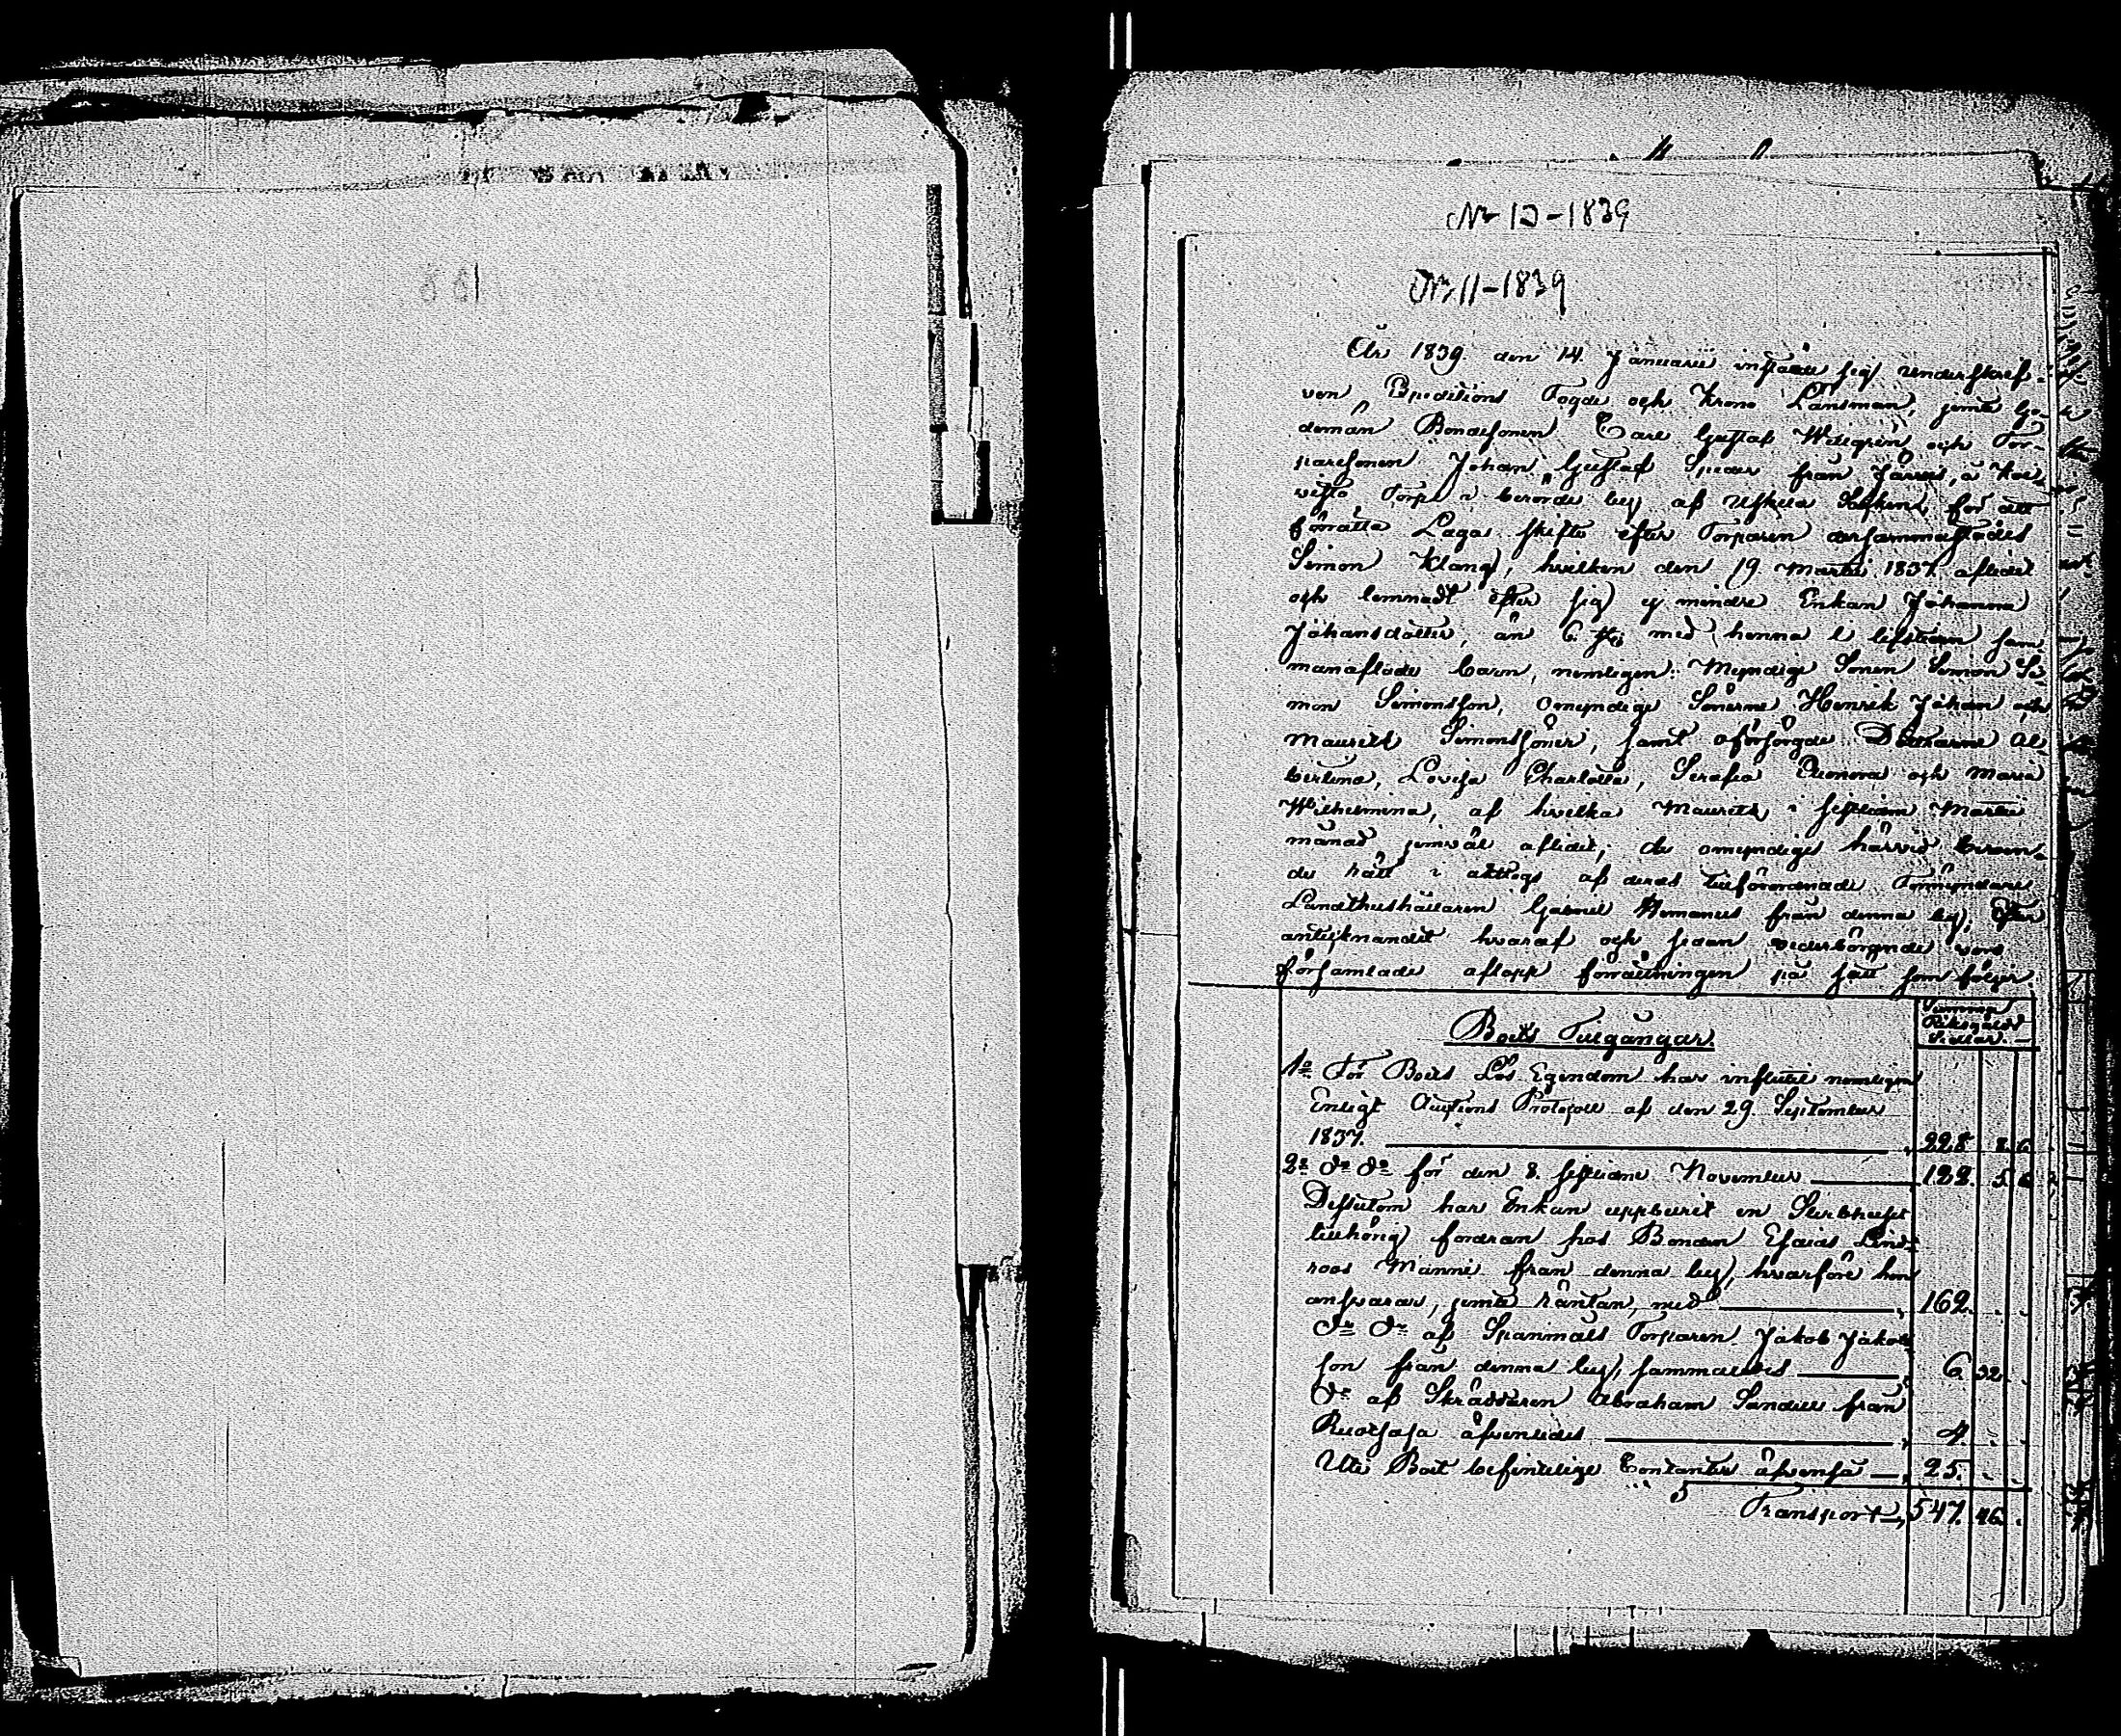 No 12-1839
No 11-1839
År 1839. den 14. Januarii instälde sig underskref-
ven Expeditions Fogde och Krono Länsman, jemte Go-
demän Bondesonen Carl Gustaf Widegrén och Tor-
paresonen Johan Gustaf från
Torp i berörde by af Uskela Sokken, för att
förrätta Laga skifte efter Torparen dersammastädes
Simon Klang, hvilken den 19 Martii 1837. aflidit
och lemnadt efter sig ej mindre Enkan Johanna
Johansdotter, än 6. st. med henne i lifstiden sam-
manaflade barn, nemligen: Myndige Sonen Simon Si-
mon Simonsson, omyndige Sönerne Henrik Johan och
Maurits Simonssöner, samt oförsörgde Döttrarne Al-
bertina, Lovisa Charlotta, Serafia Eleonora och Maria
Wilhelmina, af hvilka Maurits i sistledne Martii
månad jemväl aflidit; de omyndiges härvid beroen-
de rätt i akttogs af deras tillförordnade Förmyndare
Landthushållaren Gabriel från denna by; Efter
antecknandet hvaraf och sedan vederbörande voro
församlade aflopp förrättningen på sätt som följer
Boets Tillgångar.
Summan
Riksgälds
Sedlar.
1o För Boets Lös Egendom har influtit nemligen
Enligt Auctions Protocoll af den 29. September
1837. 228. 8. 6.
2o do do för den 8. sistledne November 122. 5. 6.
Dessutom har Enkan uppburit en Sterbhuset
tillhörig fordran hos Bonden Esaias Lind-
roos Männi från denna by, hvarföre hon
ansvarar, jemte räntan, med 162.
do do af Spanmåls Torparen Jakob Jakobs-
son från denna by, sammaledes 6. 32.
do af Skräddaren Abraham Sandell från
Ruotsala äfvenledes 4.
Uti Boet befintelige Contanter äfvenså 25.
Transport 547. 46.